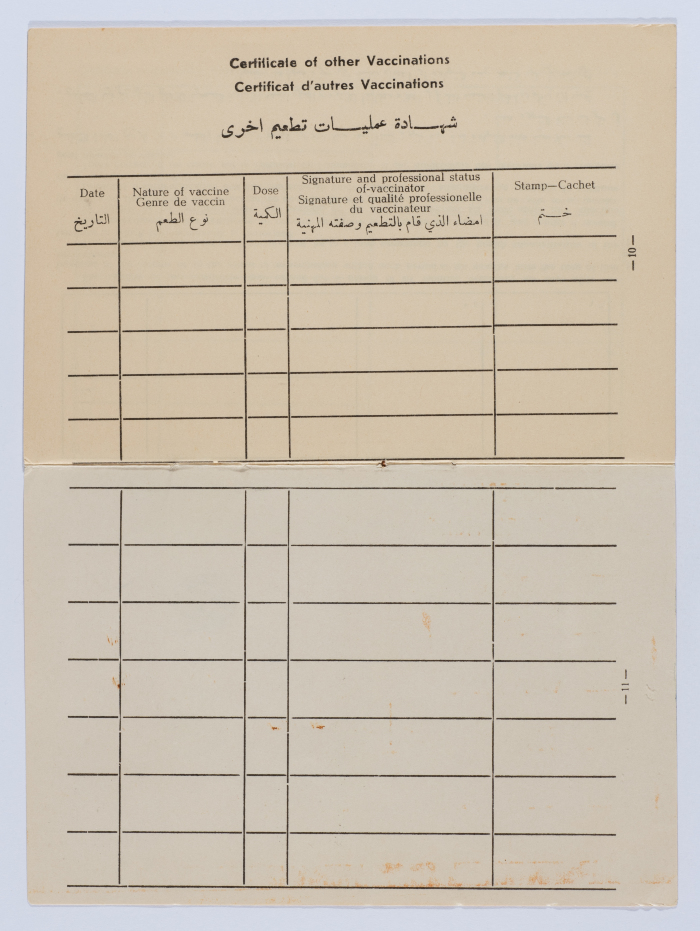 Certificale of other Vaccinations
Certificat d'autres Vaccinations
شهادة عمليات تطعيم اخرى
Date
التاريخ
Nature of vaccine
Genre de vaccin
نوع الطعم
Dose
الكمية
Signature and professional status
of-vaccinator
Signature et qualité professionelle
du vaccinateur
امضاء الذي قام بالتطعيم وصفته المهنية
Stamp—Cachet
ختم
—10—
—11—